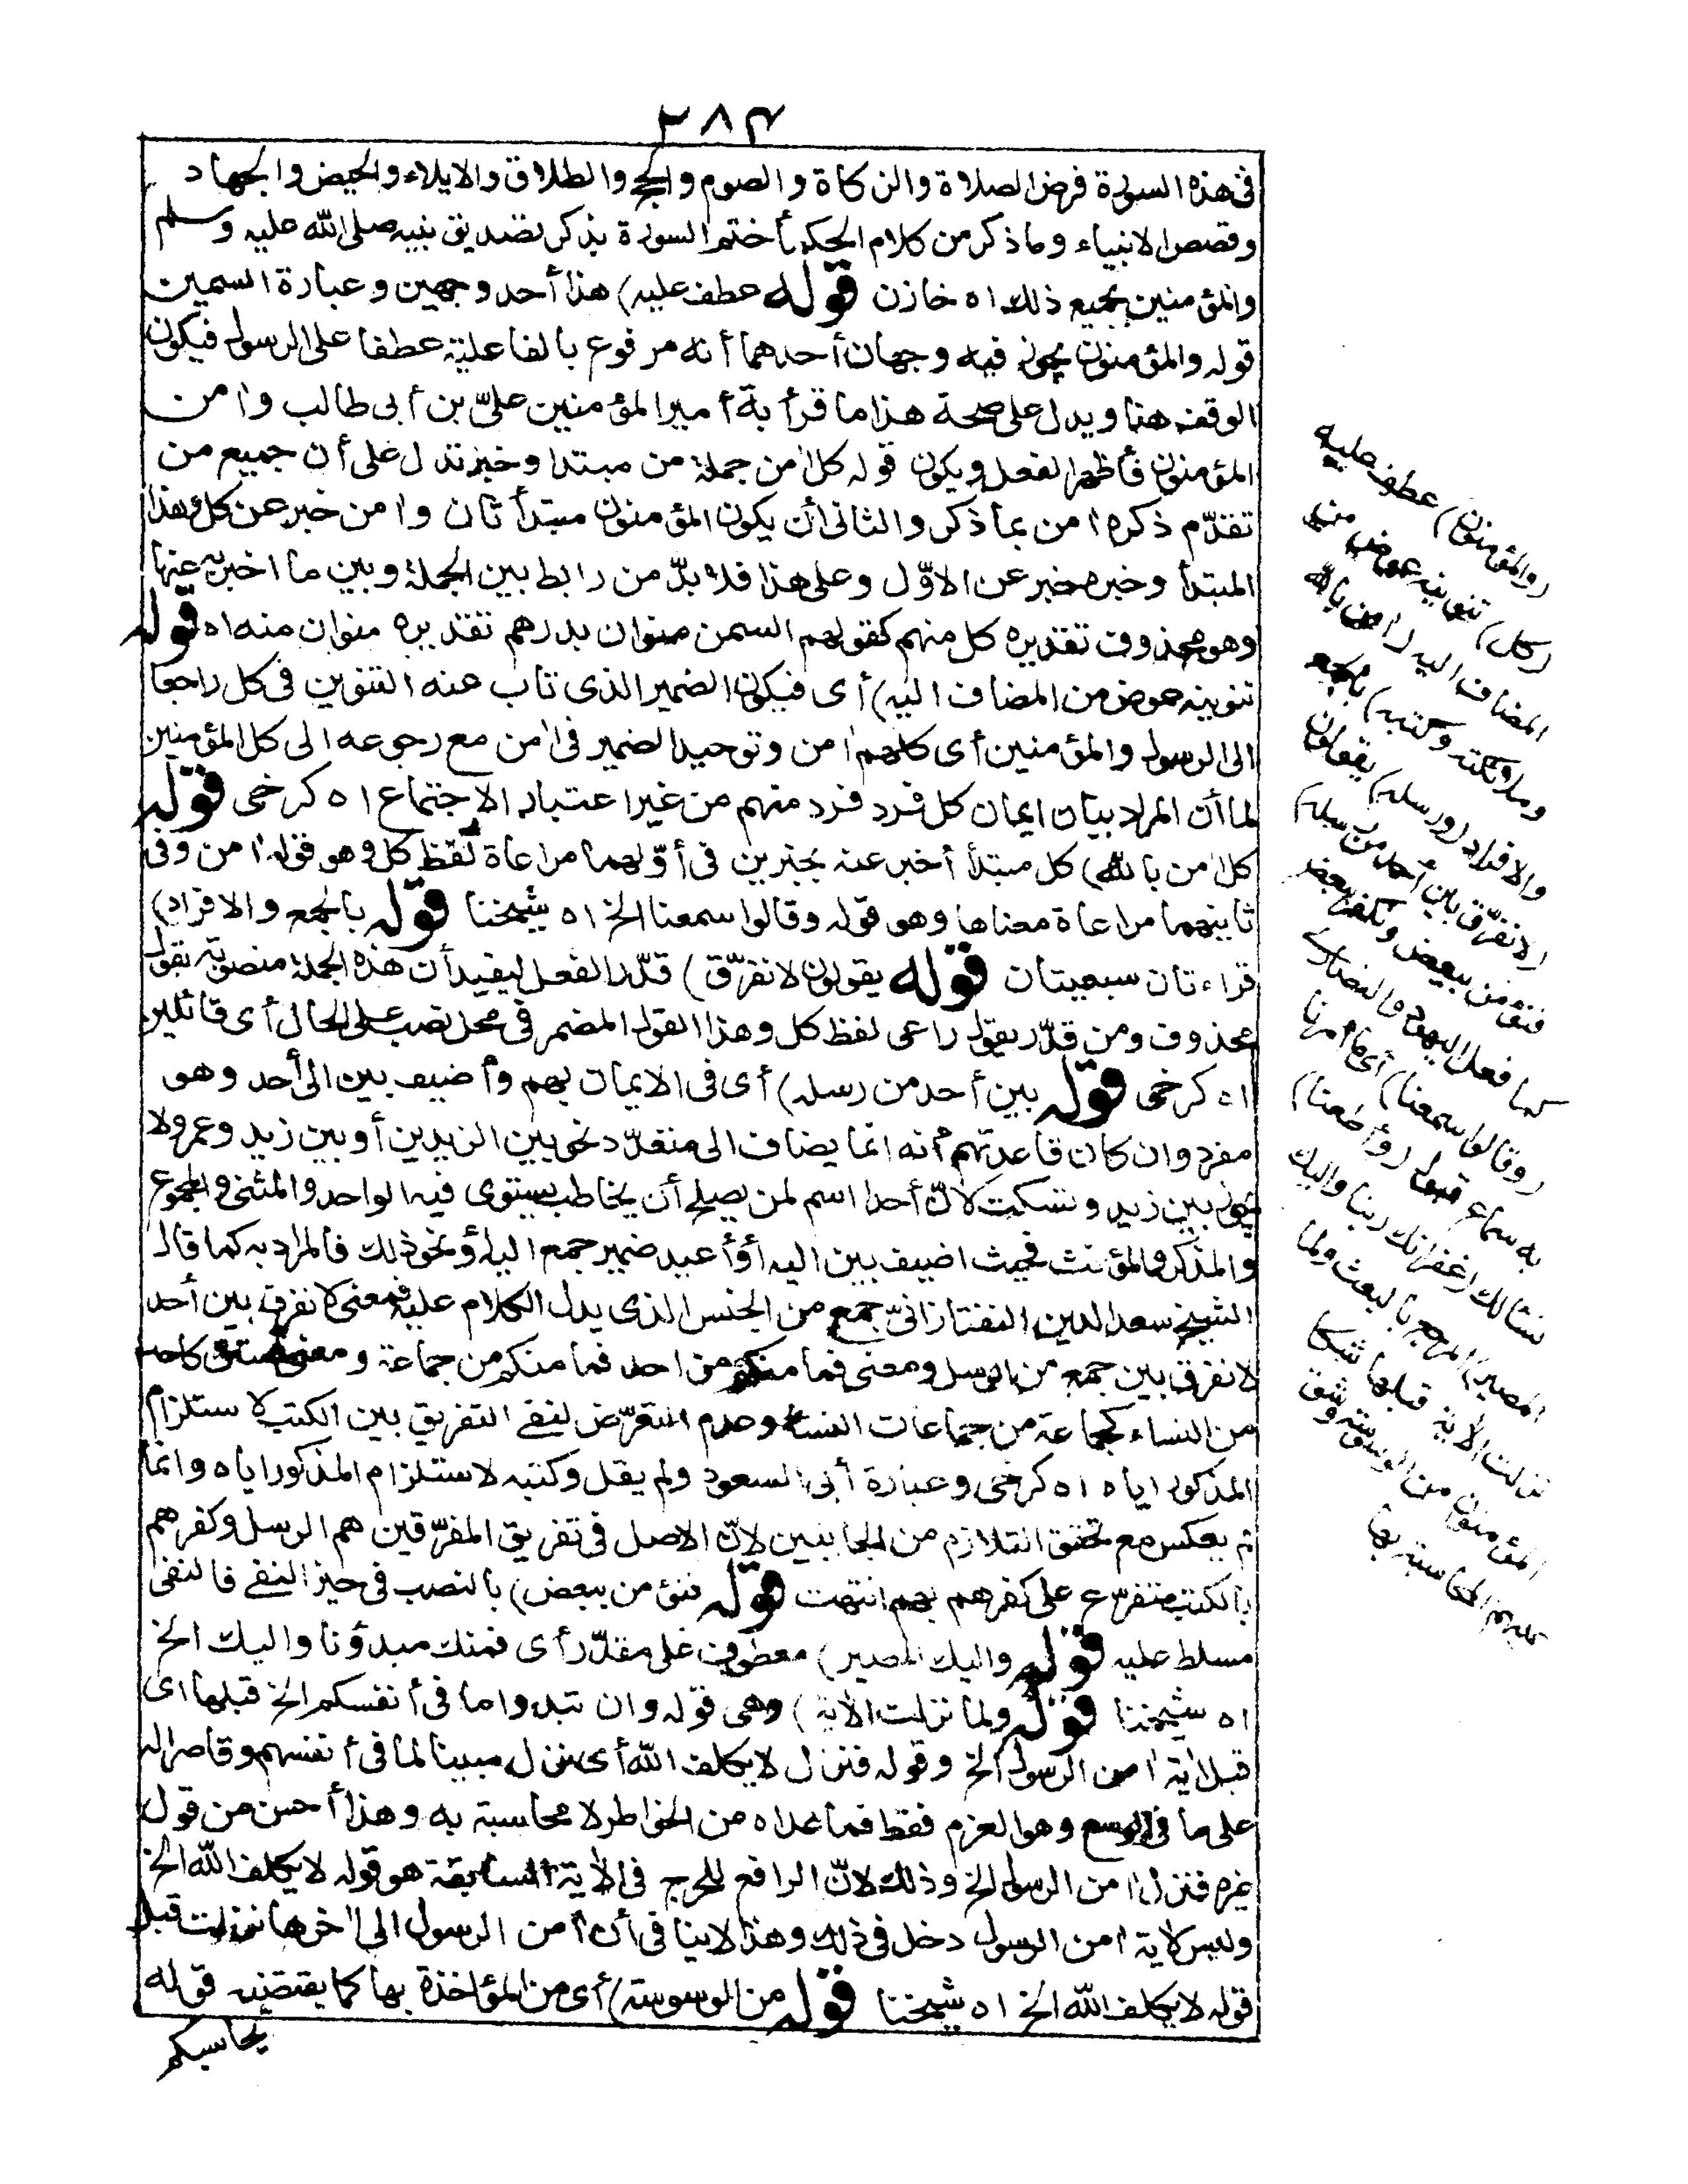 ٢٨٤
فى هذه السورة فرض الصلاة والزكاة والصوم والحج والطلاق والايلاء والحيض والجهاد
وقصص الانبياء وما ذكر من كلام الحكماء ختم السورة بذكر تصديق نبيه صلى الله عليه وسلم
والمؤمنين بجميع ذلك اه خازن قوله عطف عليه) هذا أحد وجهين وعبارة السمين
قوله والمؤمنون يجوز فيه وجهان أحدهما أنه مرفوع بالفاعلية عطفا على الرسول فيكون
الوقف هنا ويدل على صحة هذا ما قرأ به أمير المؤمنين علىّ بن أبى طالب وآمن
المؤمنون فأظهر الفعل ويكون قوله كل آمن جملة من مبتدا وخبر تدل على أن جميع من
تقدّم ذكره آمن بما ذكر والثانى أن يكون المؤمنون مبتدأ ثان وآمن خبر عن كل وهذا
المبتدأ وخبره خبر عن الاوّل وعلى هذا فلا بدّ من رابط بين الجملة وبين ما اخبر به عنها
وهو محذوف تقديره كل منهم كقولهم السمن منوان بدرهم تقديره منوان منه اه قوله
تنوينه عوض من المضاف اليه) أى فيكون الضمير الذى ناب عنه التنوين فى كل راجعا
الى الرسول والمؤمنين أى كلهم آمن وتوحيد الضمير فى آمن مع رجوعه الى كل المؤمنين
لما أن المراد بيان ايمان كل فرد فرد منهم من غير اعتبار الاجتماع اه كرخى قوله
كل آمن بالله) كل مبتدأ أخبر عنه بخبرين فى أوّلهما مراعاة لفظ كل وهو قوله آمن وفى
ثانيهما مراعاة معناها وهو قوله وقالوا سمعنا الخ اه شيخنا قوله بالجمع والافراد)
قراءتان سبعيتان قوله يقولون لا نفرّق) قدّر الفعل ليفيد أن هذه الجملة منصوبة بقول
محذوف ومن قدّر يقول راعى لفظ كل وهذا القول المضمر فى محل نصب على الحال أى قائلين
اه كرخى قوله بين أحد من رسله) أى فى الايمان بهم وأضيف بين الى أحد وهو
مفرد وان كان قاعدتهم أنه انما يضاف الى متعدّد نحو بين الزيدين أو بين زيد وعمرو ولا
يجوز بين زيد وتسكت لانّ أحدا اسم لمن يصلح أن يخاطب يستوى فيه الواحد والمثنى والمجموع
والمذكر والمؤنث فحيث اضيف بين اليه أو أعيد ضمير جمع اليه أو نحو ذلك فالمراد به كما قال
الشيخ سعد الدين التفتازانىّ جمع من الجنس الذى يدل الكلام عليه فمعنى لا نفرق بين أحد
لا نفرق بين جمع من الرسل ومعنى فما منكم من احد فما منكم من جماعة ومعنى لستن كاحد
من النساء كجماعة من جماعات النساء وعدم التعرّض لنفى التفريق بين الكتب لاستلزام
المذكور اياه اه كرخى وعبارة أبى السعود ولم يقل وكتبه لاستلزام المذكور اياه وانما
لم يعكس مع تحقق التلازم من الجانبين لانّ الاصل فى تفريق المفرّقين هم الرسل وكفرهم
بالكتب متفرّع على كفرهم بهم انتهت قوله فنؤمن ببعض) بالنصب فى حيز النفى فالنفى
مسلط عليه قوله واليك المصير) معطوف على مقدّر أى فمنك مبدؤنا واليك الخ
اه شيخنا قوله ولما نزلت الآية) وهى قوله وان تبدوا ما فى أنفسكم الخ قبلها اى
قبل آية آمن الرسول الخ وقوله فنزل لا يكلف الله أى نزل مبينا لما فى أنفسهم وقاصرا له
على ما فى الوسع وهو العزم فقط فما عداه من الخواطر لا محاسبة به وهذا أحسن من قول
غيره فنزل آمن الرسول الخ وذلك لانّ الرافع للحرج فى الآية السابقة هو قوله لا يكلف الله الخ
وليس لآية آمن الرسول دخل فى ذلك وهذا لا ينافى أن آمن الرسول الى آخرها نزلت قبل
قوله لا يكلف الله الخ اه شيخنا قوله من الوسوسة) أى من المؤاخذة بها كما يقتضيه قوله
يحاسبكم
(والمؤمنون) عطف عليه
(كل) تنوينه عوض من
المضاف اليه (آمن بالله
وملائكته وكتبه) بالجمع
والافراد (ورسله) يقولون
(لا نفرّق بين أحد من رسله)
فنؤمن ببعض ونكفر ببعض
كما فعل اليهود والنصارى
(وقالوا سمعنا) أى ما أمرنا
به سماع قبول (وأطعنا)
نسألك (غفرانك ربنا واليك
المصير) المرجع بالبعث ولما
نزلت الآية قبلها شكا
المؤمنون من الوسوسة وشق
عليهم المحاسبة بها